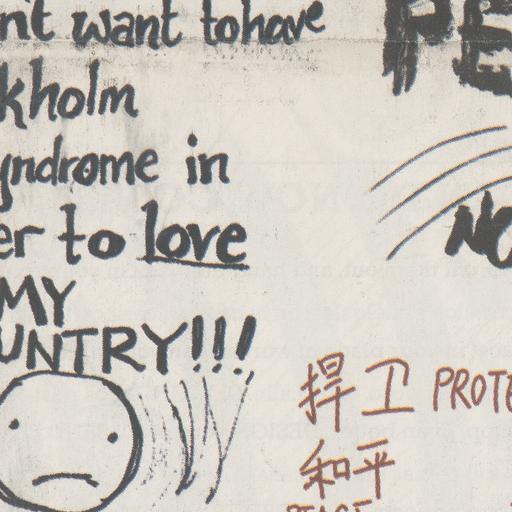 n't want to have
kholm
yndrome in
er to love
MY
UNTRY!!!
PE
NO
捍卫 PROTE
和平
PEACE